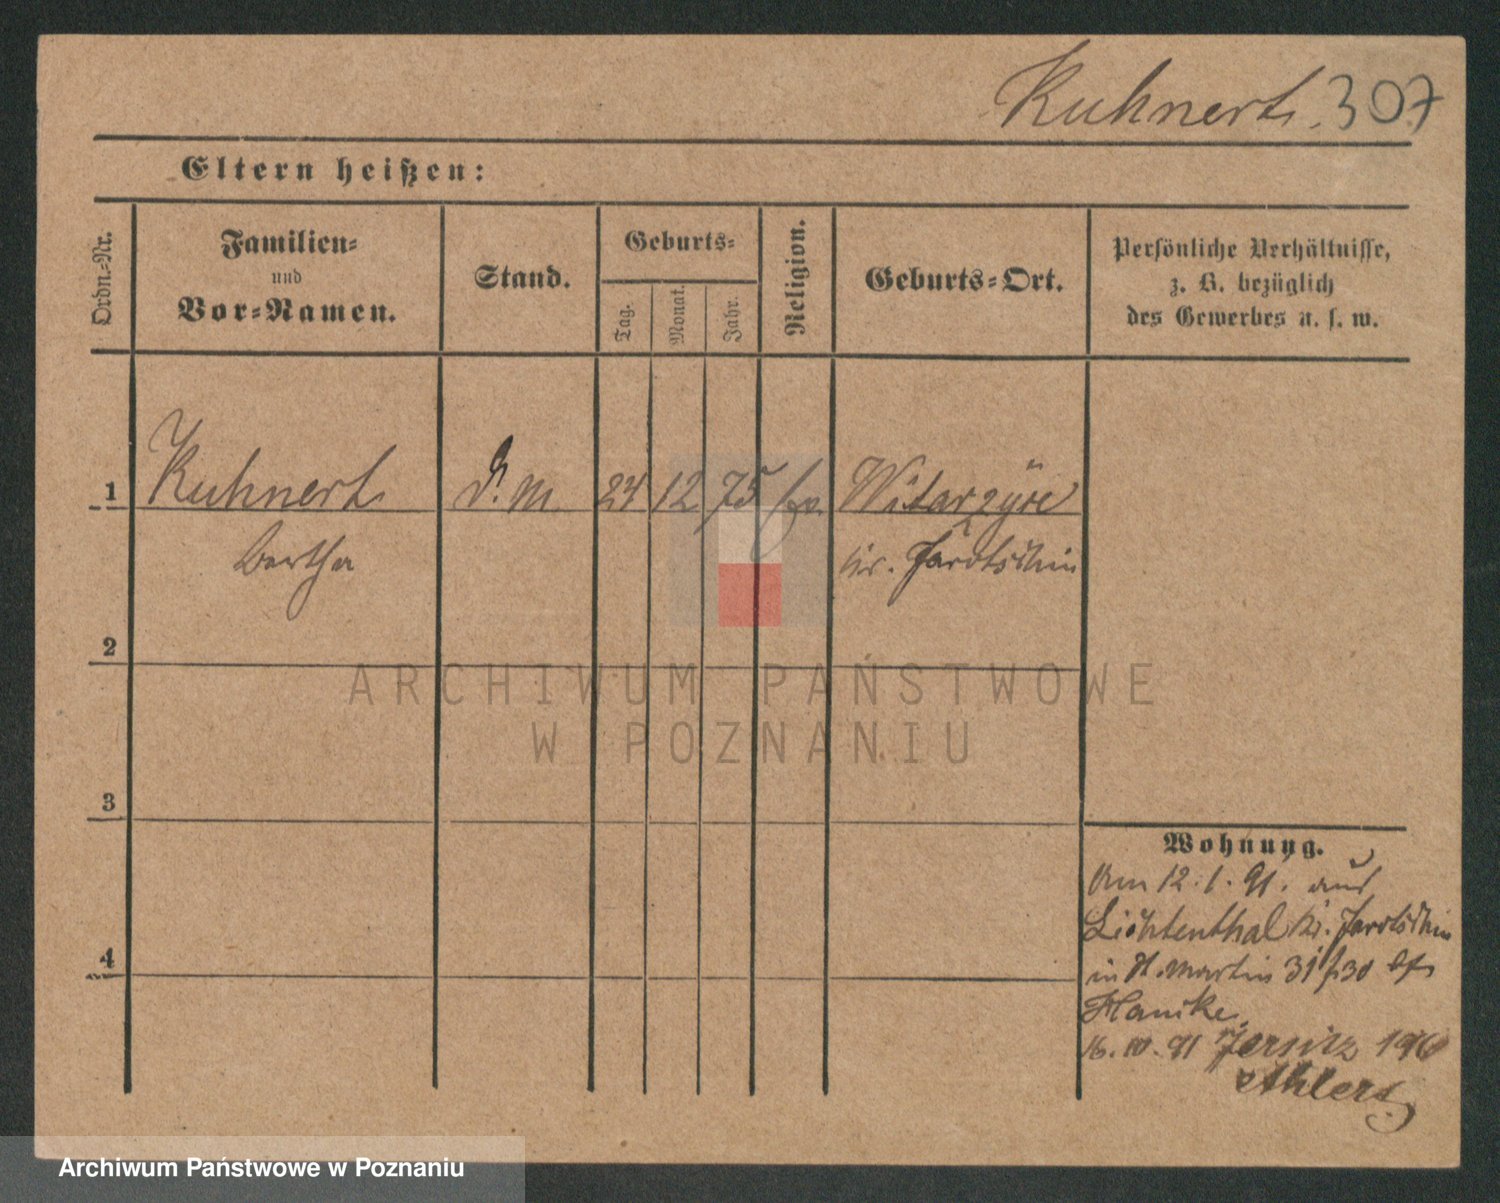 Kuhnert. 307
Eltern heißen:
Ordn.-Nr.
Familien-
und
Vor-Namen.
Stand.
Geburts-
Tag.
Monat.
Jahr.
Religion.
Geburts-Ort.
Persönliche Verhältnisse,
z. B. bezüglich
des Gewerbes u. s. w.
1 Kuhnert D. M. 24 12 75 Witarzyce
Bertha Kr. Jarotschin
2
3
4
Wohnung.
Am 12. 1. 91. aus
Lichtenthal Kr. Jarotschin
in St. Martin 31
Hanske
16. 10. 91 Jersitz 196
Ahlers
ARCHIWUM PAŃSTWOWE
W POZNANIU
Archiwum Państwowe w Poznaniu